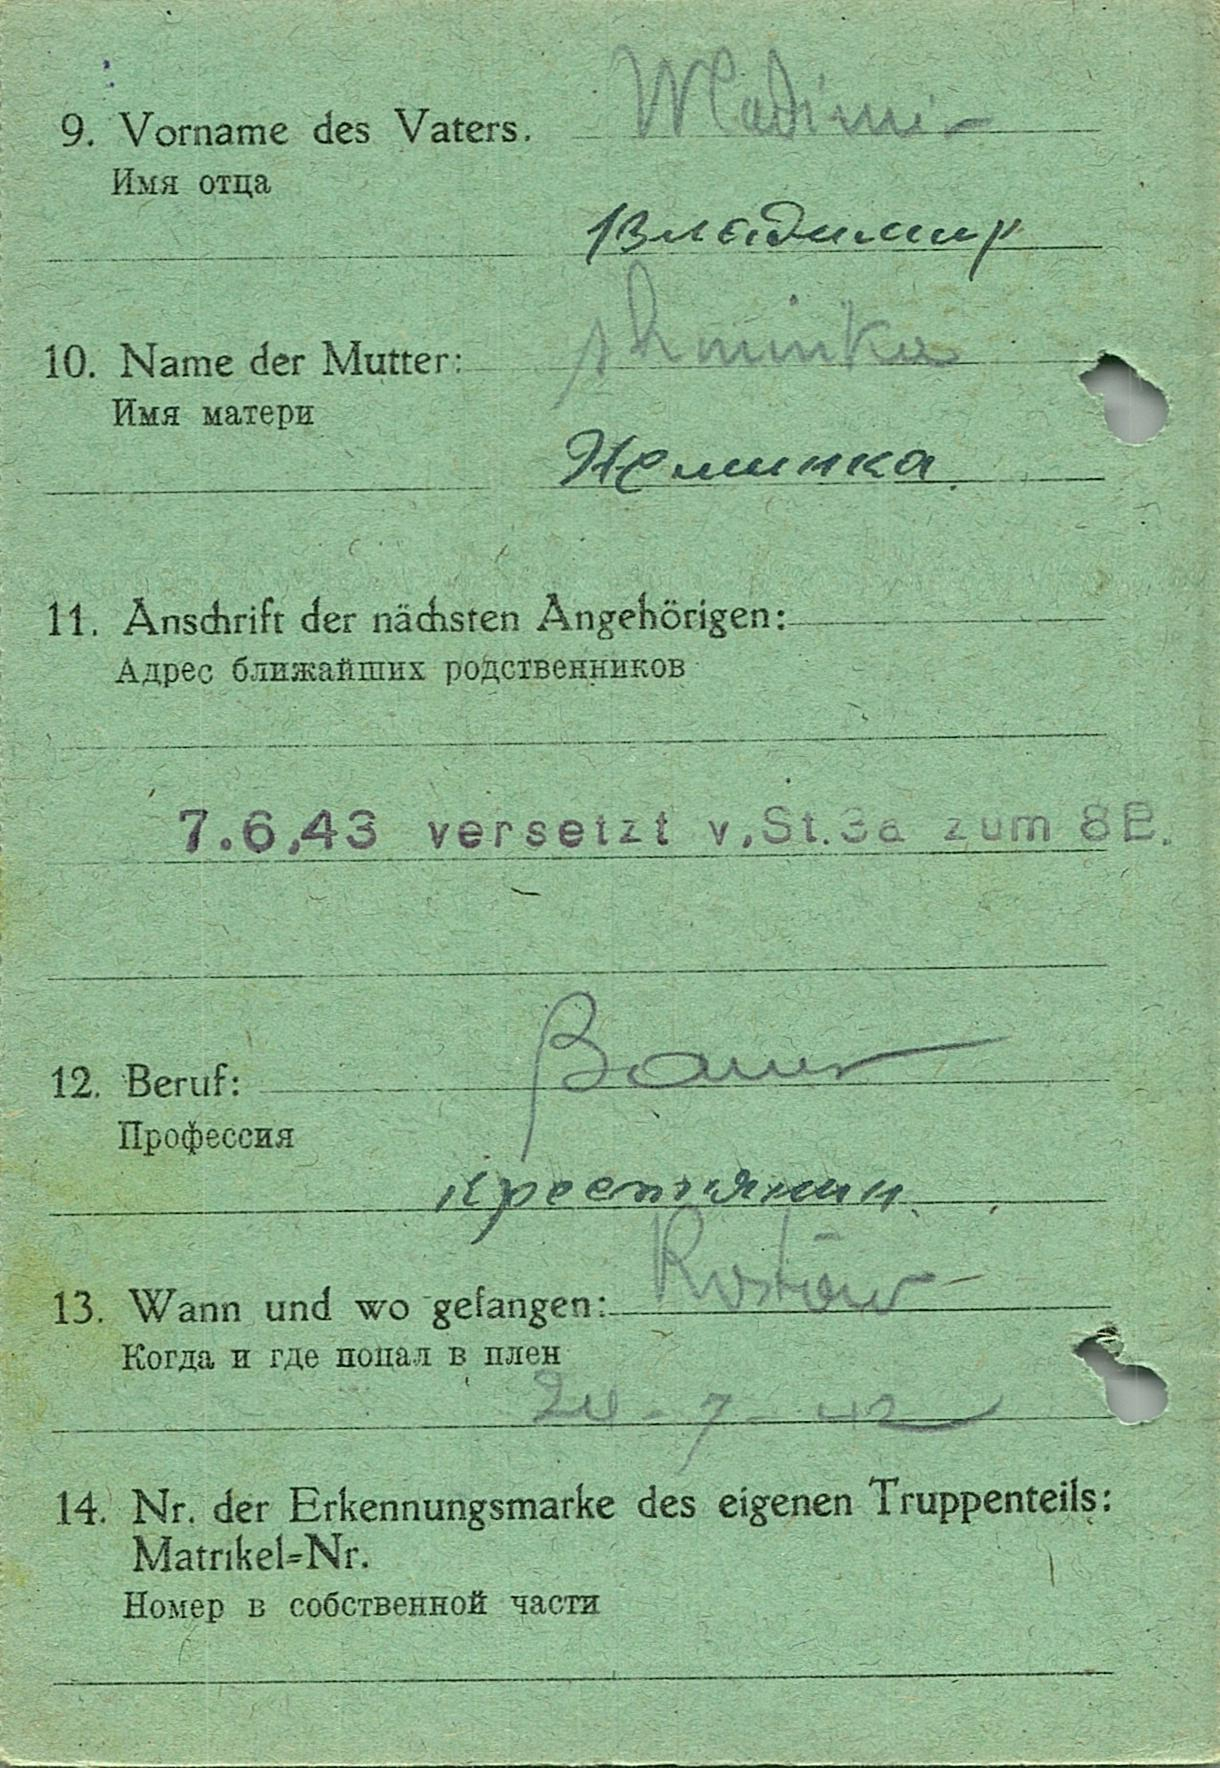 9. Vorname des Vaters. Wladimir
Имя отца
Владимир
10. Name der Mutter:
Имя матери
11. Anschrift der nächsten Angehörigen:
Адрес ближайших родственников
7.6.43 versetzt v.St.3a zum 8B.
12. Beruf: Bauer
Профессия
крестьянин
13. Wann und wo gefangen: Rostow
Когда и где попал в плен
24-7-42
14. Nr. der Erkennungsmarke des eigenen Truppenteils:
Matrikel=Nr.
Номер в собственной части